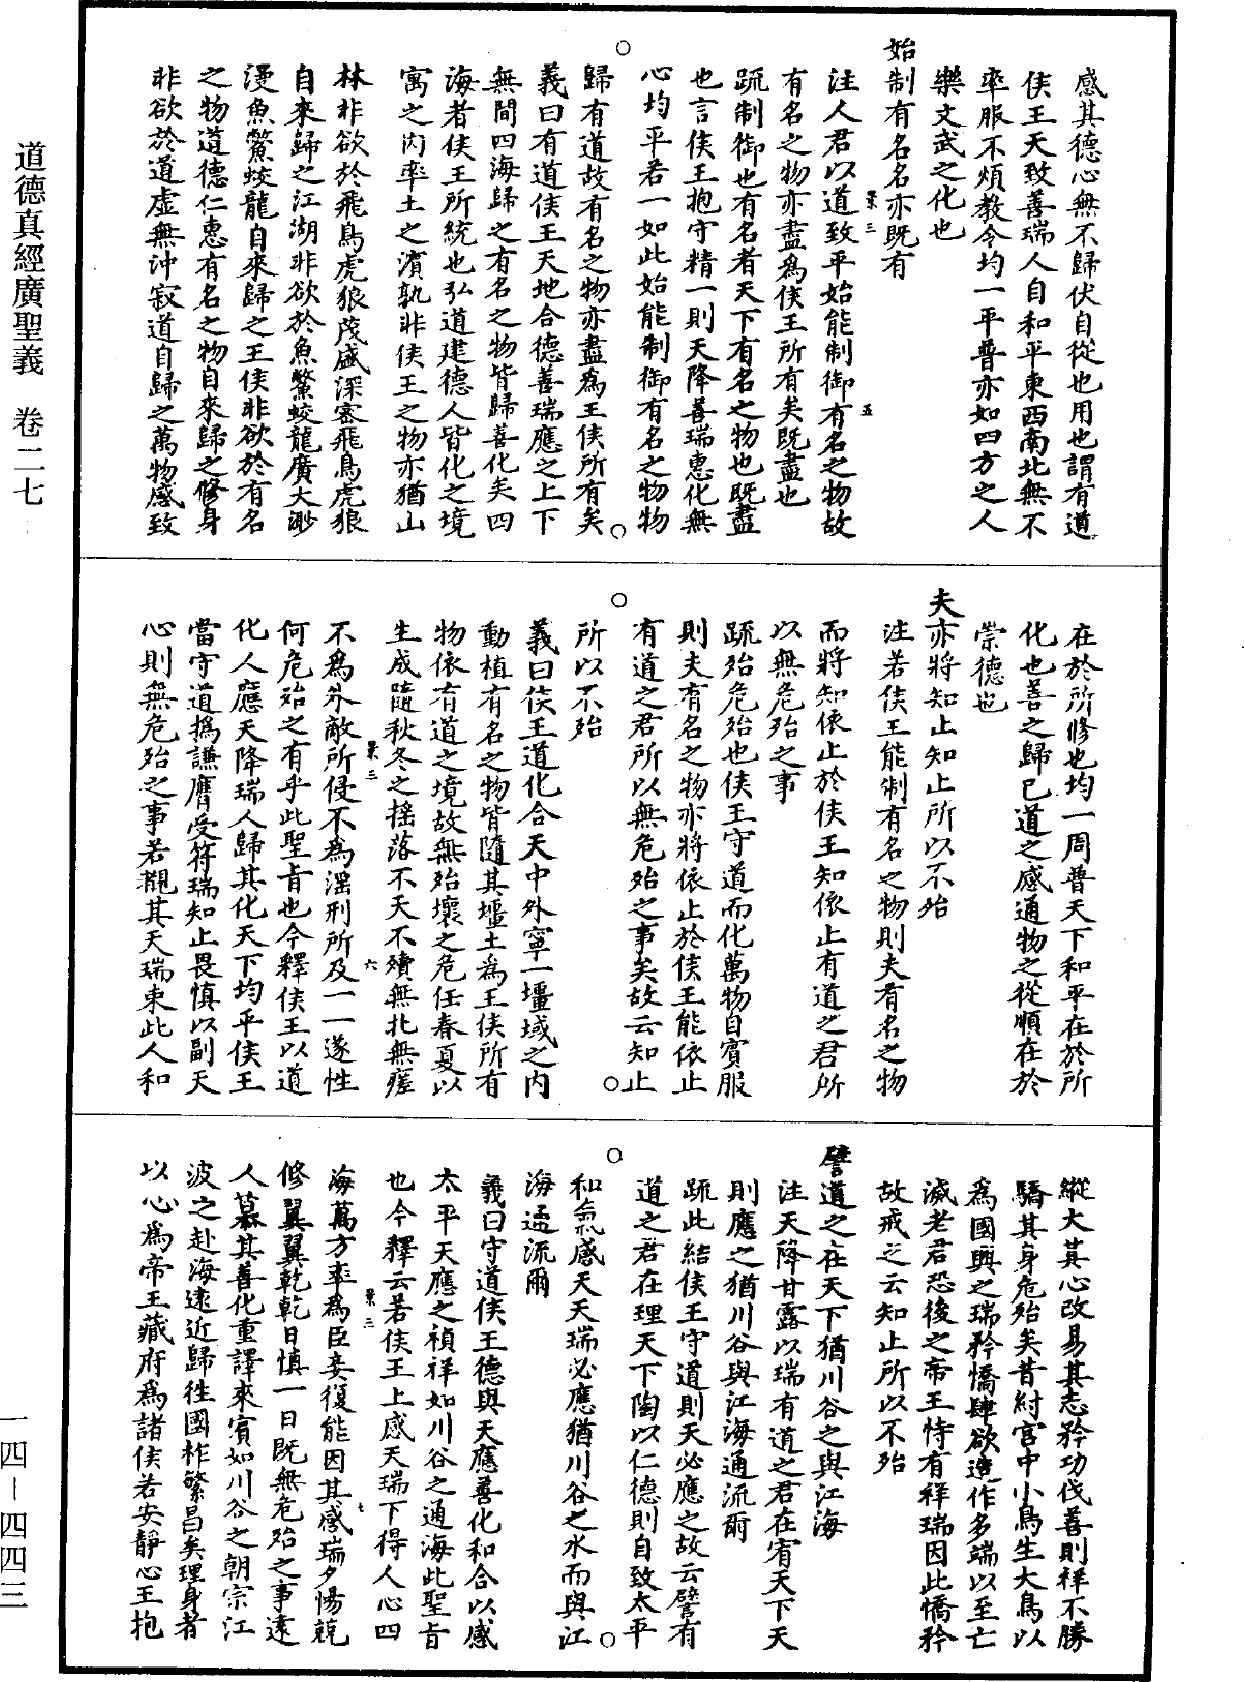 道德真經廣聖義　卷二七
感其德心無不歸伏自從也用也謂有道
侯王天致善瑞人自和平東西南北無不
率服不煩教令均一平普亦如四方之人
樂文武之化也
始制有名名亦既有
注人君以道致平始能制御有名之物故
有名之物亦盡為侯王所有矣既盡也
疏制御也有名者天下有名之物也既盡
也言侯王抱守精一則天降善瑞惠化無
心均平若一如此始能制御有名之物物
歸有道故有名之物亦盡為王侯所有矣
義曰有道侯王天地合德善瑞應之上下
無間四海歸之有名之物皆歸善化矣四
海者侯王所統也弘道建德人皆化之境
寓之內率土之濱孰非侯王之物亦猶山
林非欲於飛鳥虎狼茂盛深密飛鳥虎狼
自來歸之江湖非欲於魚鱉蛟龍廣大渺
漫魚鱉蛟龍自來歸之王侯非欲於有名
之物道德仁惠有名之物自來歸之修身
非欲於道虛無沖寂道自歸之萬物感致
在於所修也均一周普天下和平在於所
化也善之歸已道之感通物之從順在於
崇德也
夫亦將知止知止所以不殆
注若侯王能制有名之物則夫有名之物
而將知依止於侯王知依止有道之君所
以無危殆之事
疏殆危殆也侯王守道而化萬物自賓服
則夫有名之物亦將依止於侯王能依止
有道之君所以無危殆之事矣故云知止
所以不殆
義曰侯王道化合天中外寧一壃域之內
動植有名之物皆隨其壃土為王侯所有
物依有道之境故無殆壞之危任春夏以
生成隨秋冬之搖落不夭不殰無札無瘥
不為外敵所侵不為淫刑所及一一遂性
何危殆之有乎此聖旨也今釋侯王以道
化人應天降瑞人歸其化天下均平侯王
當守道撝謙膺受符瑞知止畏慎以副天
心則無危殆之事若覩其天瑞東此人和
縱大其心改易其志矜功伐善則祥不勝
驕其身危殆矣昔紂宮中小鳥生大鳥以
為國興之瑞矜憍肆欲造作多端以至亡
滅老君恐後之帝王恃有祥瑞因此憍矜
故戒之云知止所以不殆
譬道之在天下猶川谷之與江海
注天降甘露以瑞有道之君在宥天下天
則應之猶川谷與江海通流爾
疏此結侯王守道則天必應之故云譬有
道之君在理天下陶以仁德則自致太平
和氣感天天瑞必應猶川谷之水而與江
海通流爾
義曰守道侯王德與天應善化和合以感
太平天應之禎祥如川谷之通海此聖旨
也今釋云若侯王上感天瑞下得人心四
海萬方率為臣妾復能因其感瑞夕惕兢
修翼翼乾乾日慎一日既無危殆之事遠
人慕其善化重譯來賓如川谷之朝宗江
波之赴海遠近歸往國祚繁昌矣理身者
以心為帝王藏府為諸侯若安靜心王抱
一四－四四三